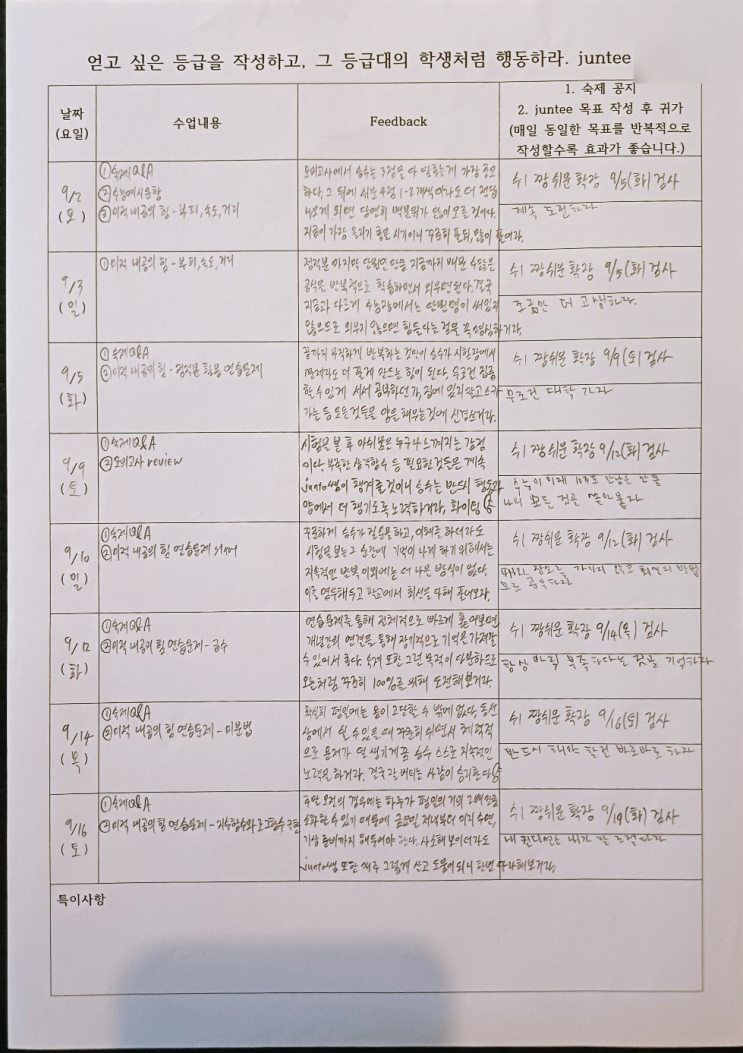 얻고 싶은 등급을 작성하고, 그 등급대의 학생처럼 행동하라. juntee
날짜
(요일)
수업내용
Feedback
1. 숙제 공지
2. juntee 목표 작성 후 귀가
(매일 동일한 목표를 반복적으로
작성할수록 효과가 좋습니다.)
9/2
(토)
①숙제Q&A
②수능예시문항
③미적 내공의 힘 - 부피, 속도, 거리
모의고사에서 승수는 3점을 다 맞추는게 가장 중요
하다. 그 뒤에 쉬운 4점 1-2개씩
나오게 되면 당연히 백분위가 많이 오를 것이다.
지금이 가장 오르기 좋은 시기이니 꾸준히
수1 짱쉬운 확장 9/5(화) 검사
계속 도전하라
9/3
(일)
①미적 내공의 힘 - 부피, 속도, 거리
정적분 마지막 단원인 만큼 지금까지 배운 수많은
공식을 반복적으로 학습하면서 외우면된다. 결국
지금과 다르게 수능장에서는 단원명이 써있지
않으므로 외우지 않으면 힘들다는 점을 꼭 명심하거라.
수1 짱쉬운 확장 9/5(화) 검사
조금만 더 고생하라.
9/5
(화)
①숙제Q&A
②미적 내공의 힘 - 정적분 활용 연습문제
끝까지 우직하게 반복하는 것만이 승수가 시험장에서
한문제라도 더 풀게 만드는 힘이 된다. 무조건 집중
할 수 있게 서서 공부하던가, 집에 있지말고 스카
가는 등 모든것들을 양을 채우는것에 신경쓰거라.
수1 짱쉬운 확장 9/9(토) 검사
무조건 대학 가자
9/9
(토)
①숙제Q&A
②모의고사 review
시험을 본 후 아쉬움은 누구나 느껴지는 감정
이다. 부족한 삼각함수 등 필요한것들은 계속
junte쌤이 챙겨줄것이니 승수는 반드시
양에서 더 챙기도록 노력하거라. 화이팅
수1 짱쉬운 확장 9/12(화) 검사
수능이 이제
나의 모든 것을 쏟아붓자
9/10
(일)
①숙제Q&A
②미적 내공의 힘 연습문제 start
꾸준하게 승수가 질문을 하고, 이해를 하더라도
시험을 보는 그 순간에 기억이 나게 하기 위해서는
지속적인 반복 이외에는 더 나은 방식이 없다.
이를 염두해두고 학교에서 최선을 다해 풀어보자.
수1 짱쉬운 확장 9/12(화) 검사
가리지 않고 최선의 방법
으로 공부하라
9/12
(화)
①숙제Q&A
②미적 내공의 힘 연습문제 - 급수
연습문제를 통해 전체적으로 빠르게 훑어보면
개념간의 연결을 통해 장기적으로 기억을 가져갈
수 있어서 좋다. 숙제 또한 그런 목적이 다분하므로
오늘처럼 꾸준히 100%를 위해 도전해보거라.
수1 짱쉬운 확장 9/14(목) 검사
항상 아직 부족하다는 것을 기억하자
9/14
(목)
①숙제Q&A
②미적 내공의 힘 연습문제 - 미분법
확실히 평일에는 몸이 고단할 수 밖에 없다. 동선
상에서 쉴 수 있을 때 꾸준히 쉬면서 체력적
으로 문제가 덜 생기게끔 승수 스스로 지속적인
노력을 하거라. 결국 잘 버티는 사람이 승리한다
수1 짱쉬운 확장 9/16(토) 검사
반드시 해야 할건 바로바로 하자
9/16
(토)
①숙제Q&A
②미적 내공의 힘 연습문제 - 지수함수와 로그함수 극한
주말 오전의 경우에는 하루가 평일의 거의 2배만큼
소화할 수 있기 때문에 금요일 저녁부터 미리 수면,
기상 준비까지 해두어야 한다. 사소해 보이더라도
junte쌤 또한 매주 그렇게 살고 도움이 되니 한번 따라해보거라.
수1 짱쉬운 확장 9/19(화) 검사
내 컨디션은 내가 잘 조절하라
특이사항